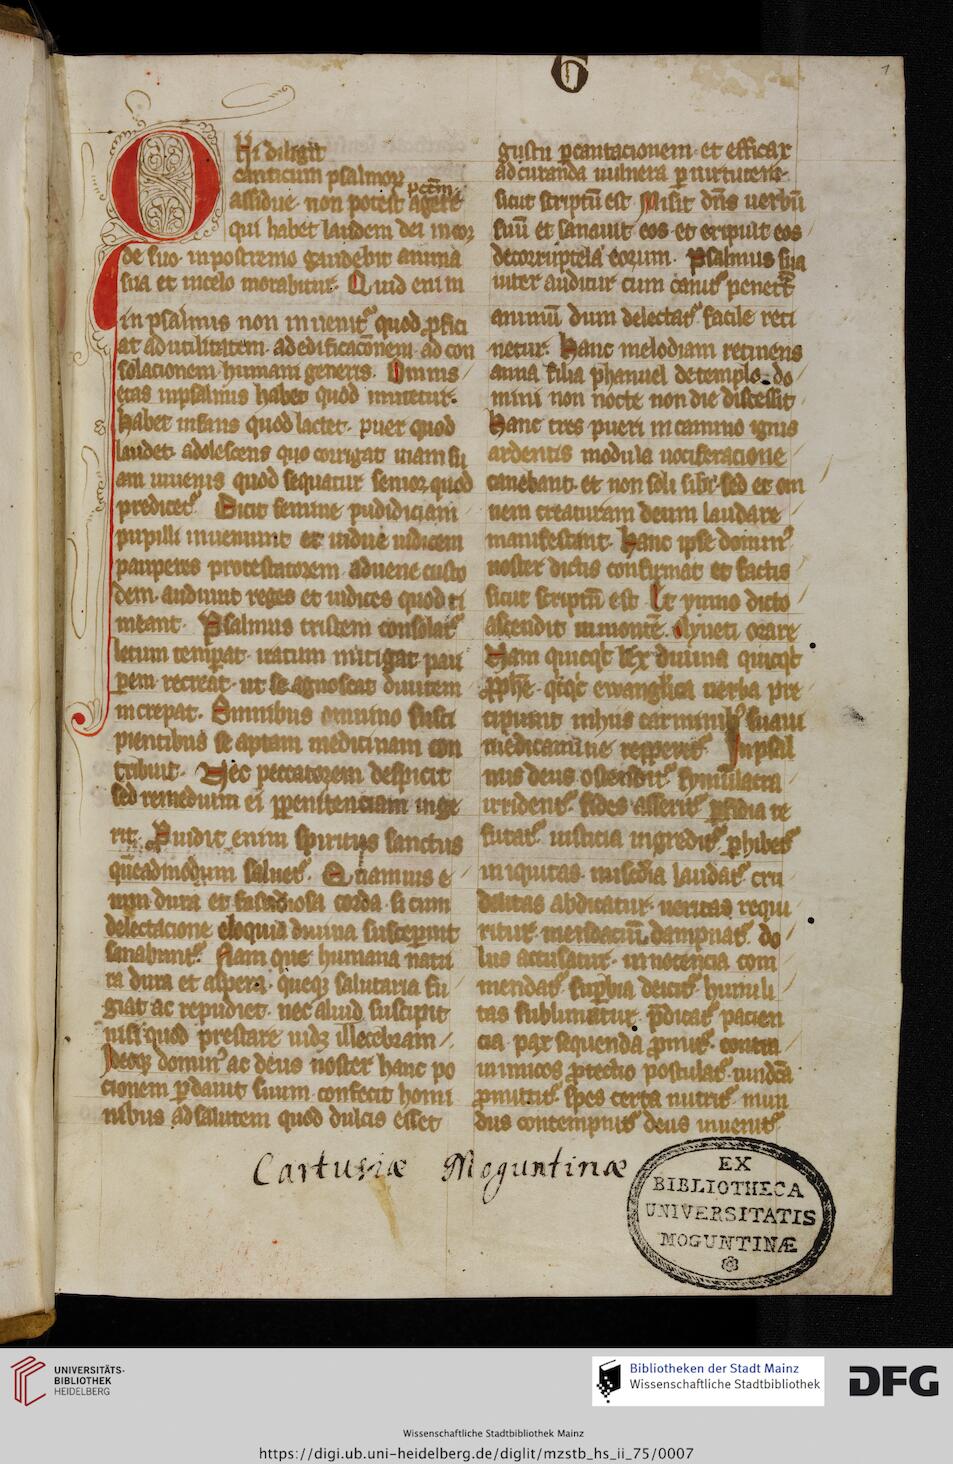 6
1
QVi diligit
canticum psalmorum
pctm
assidue non potest agere
qui habet laudem dei in cor
de suo in postremo gaudebit anima
sua et in celo morabitur. Quid enim
in psalmis non inuenitur quod profici
at ad utilitatem ad edificacionem ad con
solacionem humani generis. Omnis
etas in psalmis habet quod imitetur.
habet infans quod lactet. puer quod
laudet. adolescens quo corrigat uiam su
am iuuenis quod sequatur senior quod
predicet. Dicit femine pudiciciam
pupilli inueniunt et uidue iudicem
pauperes protestatorem aduene custo
dem. audiunt reges et iudices quod ti
meant. Psalmus tristem consolatur
letum temperat. iratum mitigat pau
perem recreat. ut se agnoscat diuitem
increpat. Omnibus omnino susci
pientibus se aptam medicinam con
tribuit. Nec peccatorem despicit
sed remedium ei per penitenciam inge
rit. Uidit enim spiritus sanctus
quemadmodum saluet. Etiamuis e
nim dura et fastidiosa corda si cum
delectacione eloquia diuina susceperint
sanabuntur. Nam que humana natu
ra dura et aspera. queque salutaria fu
giat ac repudiet. nec aliud suscipit
nisi quod prestare uidetur illecebram
Ideoque dominus ac deus noster hanc po
cionem perdauit suum confecit homi
nibus ad salutem quod dulcis esset
gustu per cantacionem et efficax
ad curanda uulnera per uirtutem.
sicut scriptum est Misit dns uerbum
suum et sanauit eos et eripuit eos
de corruptela eorum. Psalmus sua
uiter auditur cum canitur penetrat
animum dum delectatur facile reti
netur. Hanc melodiam retinens
anna filia phanuel de templo do
mini non nocte non die discessit
Hanc tres pueri in camino ignis
ardentis modula uociferacione
canebant. et non soli sibi sed et om
nem creaturam deum laudare
manifestant. Hanc ipse dominus
noster dictis confirmat et factis
sicut scriptum est Et ymno dicto
ascendit in montem Oyueti orare
Nam quicquid lex diuina quicquid
prophete quicquid ewangelica uerba pre
cipiunt in hiis carminibus suaui
medicamine repperitur. In psal
mis deus ostenditur symulacra
irridentur. fides asseritur perfidia re
futatur iusticia ingreditur prohibetur
iniquitas. misericordia laudatur cru
delitas abdicatur. ueritas requi
ritur. mendacium dampnatur. do
lus accusatur innocencia com
mendatur superbia deicitur humili
tas sublimatur. predicatur pacien
cia pax sequenda promitur. contra
inimicos protectio postulatur. uindicta
promittitur spes certa nutritur mun
dus contempnitur deus inuenitur
Cartusiæ Moguntinæ
EX
BIBLIOTHECA
UNIVERSITATIS
MOGUNTINÆ
UNIVERSITÄTS-
BIBLIOTHEK
HEIDELBERG
Bibliotheken der Stadt Mainz
Wissenschaftliche Stadtbibliothek
DFG
Wissenschaftliche Stadtbibliothek Mainz
https://digi.ub.uni-heidelberg.de/diglit/mzstb_hs_ii_75/0007